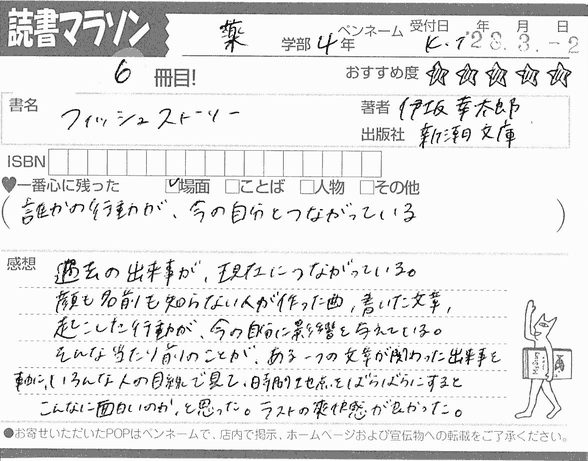 読書マラソン 薬 学部 4年 ペンネーム K.T 受付日 '28年 3.月 -2日
6 冊目! おすすめ度 ☆☆☆☆☆
書名 フィッシュストーリー 著者 伊坂幸太郎
出版社 新潮文庫
ISBN
♥一番心に残った ☑場面 □ことば □人物 □その他
(誰かの行動が、今の自分とつながっている)
感想 過去の出来事が、現在につながっている。
顔も名前も知らない人が作った曲、書いた文章、
起こした行動が、今の自分に影響を与えている。
そんな当たり前のことが、ある一つの文章が関わった出来事を
軸に、いろんな人の目線で見て、時間も地点もばらばらにすると
こんなに面白いのか、と思った。ラストの爽快感が良かった。
●お寄せいただいたPOPはペンネームで、店内で掲示、ホームページおよび宣伝物への転載をご了承ください。